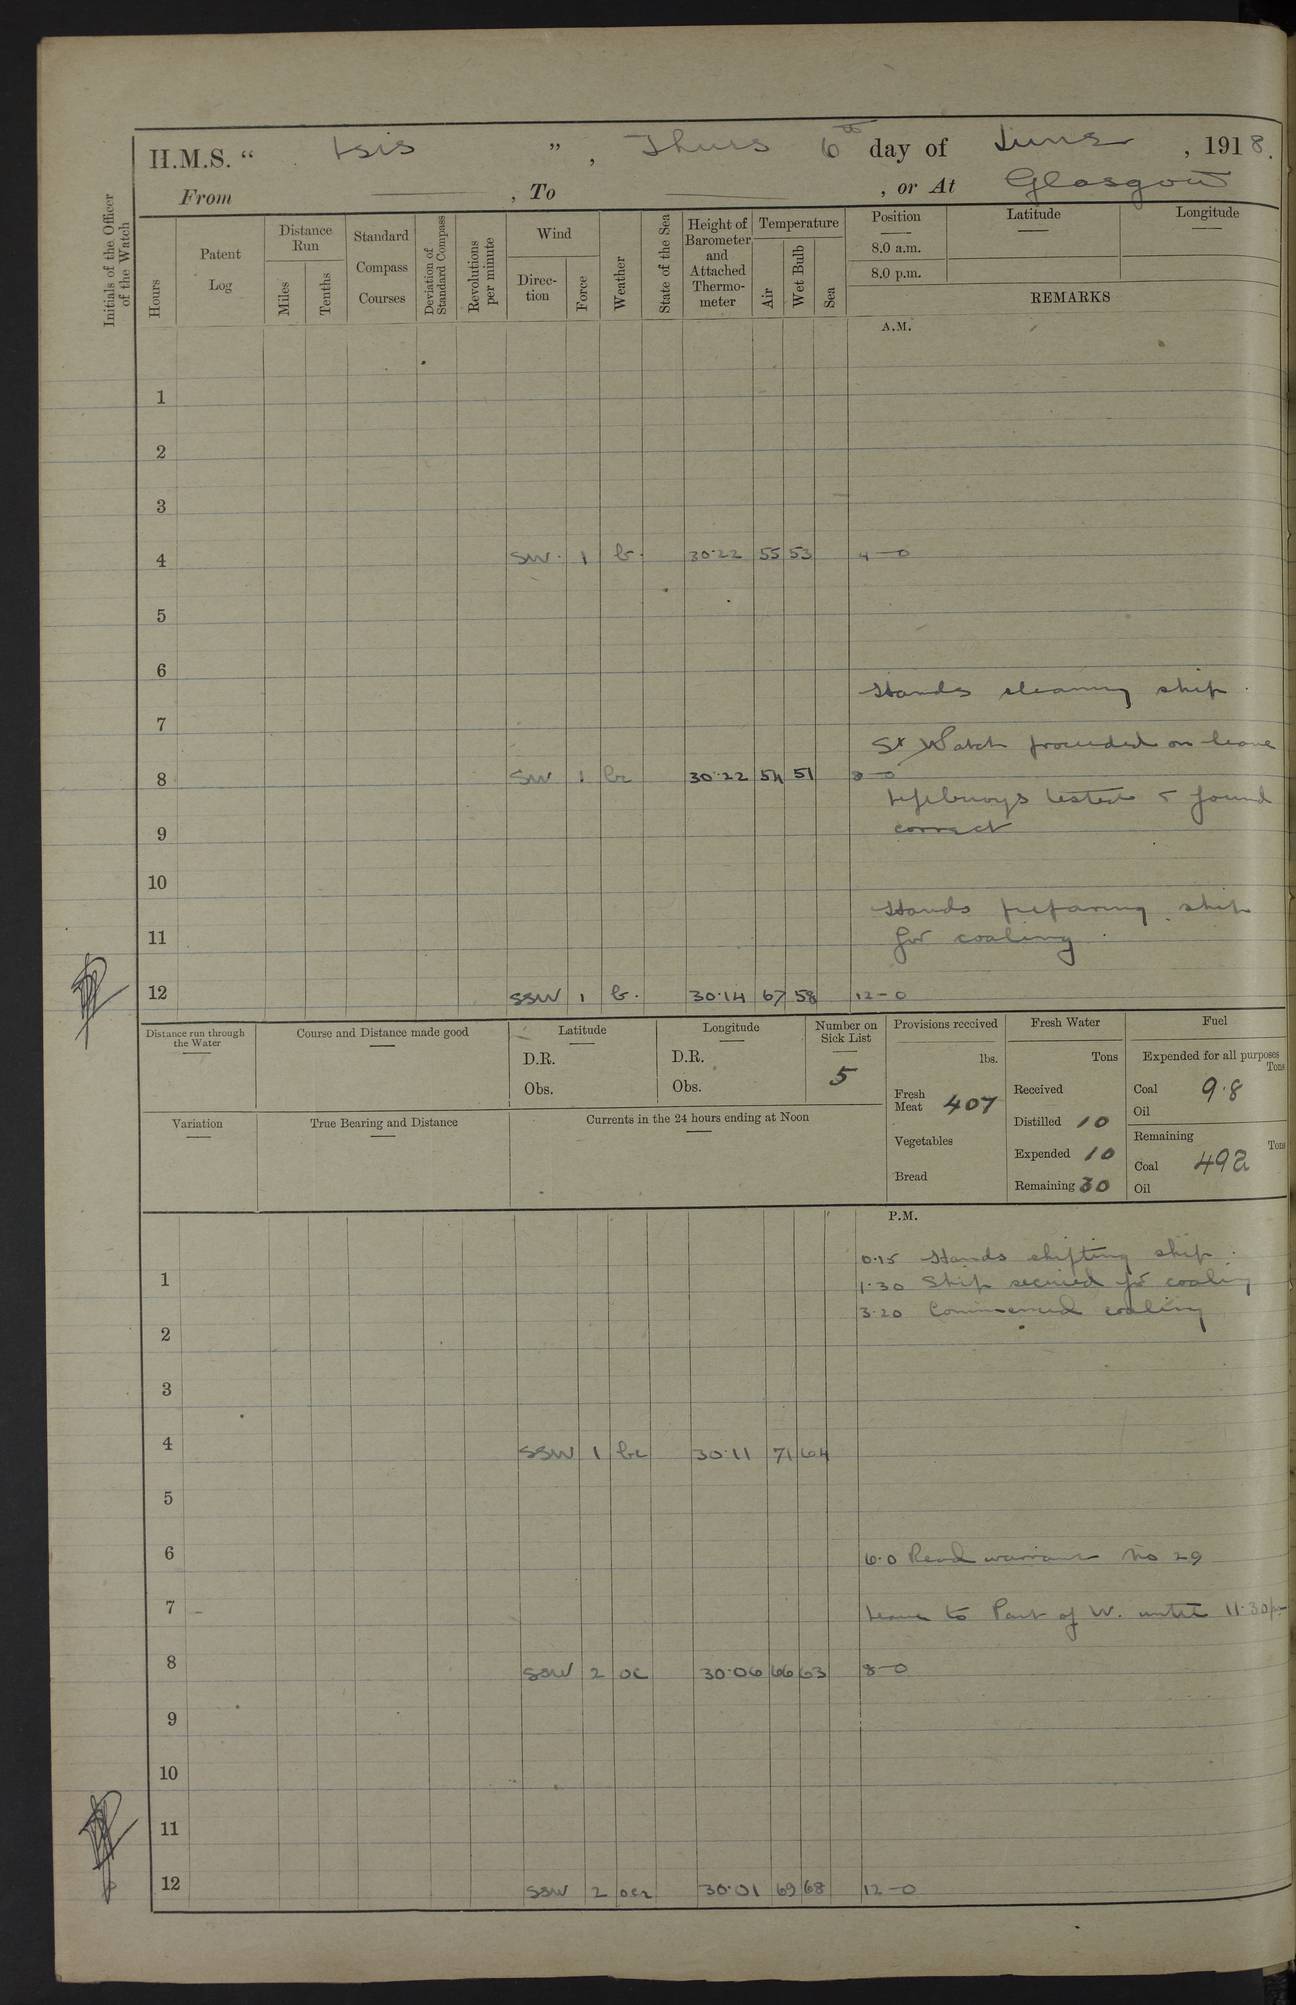 H.M.S. “ Isis ”, Thurs 6th day of June, 1918.
From ———, To ———, or At Glasgow
Initials of the Officer of the Watch
Hours
Patent Log
Distance Run
Miles
Tenths
Standard Compass Courses
Deviation of Standard Compass
Revolutions per minute
Wind
Direc-tion
Force
Weather
State of the Sea
Height of Barometer and Attached Thermo-meter
Temperature
Air
Wet Bulb
Sea
Position
8.0 a.m.
8.0 p.m.
Latitude
Longitude
REMARKS
A.M.
1
2
3
4 SW. 1 b. 30·22 55 53 4–0
5
6
Hands cleaning ship.
7
St Watch proceeded on leave
8 SW 1 bc 30·22 54 51 8–0
Lifebuoys tested & found
9 correct
10
Hands preparing ship
11 for coaling.
12 SSW 1 b. 30·14 67 58 12–0
Distance run through the Water
Course and Distance made good
Latitude
D.R.
Obs.
Longitude
D.R.
Obs.
Number on Sick List
5
Provisions received
lbs.
Fresh Meat 407
Vegetables
Bread
Fresh Water
Tons
Received
Distilled 10
Expended 10
Remaining 30
Fuel
Expended for all purposes
Tons
Coal 9·8
Oil
Remaining
Tons
Coal 492
Oil
Variation
True Bearing and Distance
Currents in the 24 hours ending at Noon
P.M.
0·15 Hands shifting ship.
1 1·30 Ship secured for coaling
3·20 Commenced coaling
2
3
4 SSW 1 bc 30·11 71 64
5
6 6·0 Read warrant No 29
7 Leave to Part of W. until 11·30 pm
8 SSW 2 oc 30·06 66 63 8–0
9
10
11
12 SSW 2 ocr 30·01 69 68 12–0